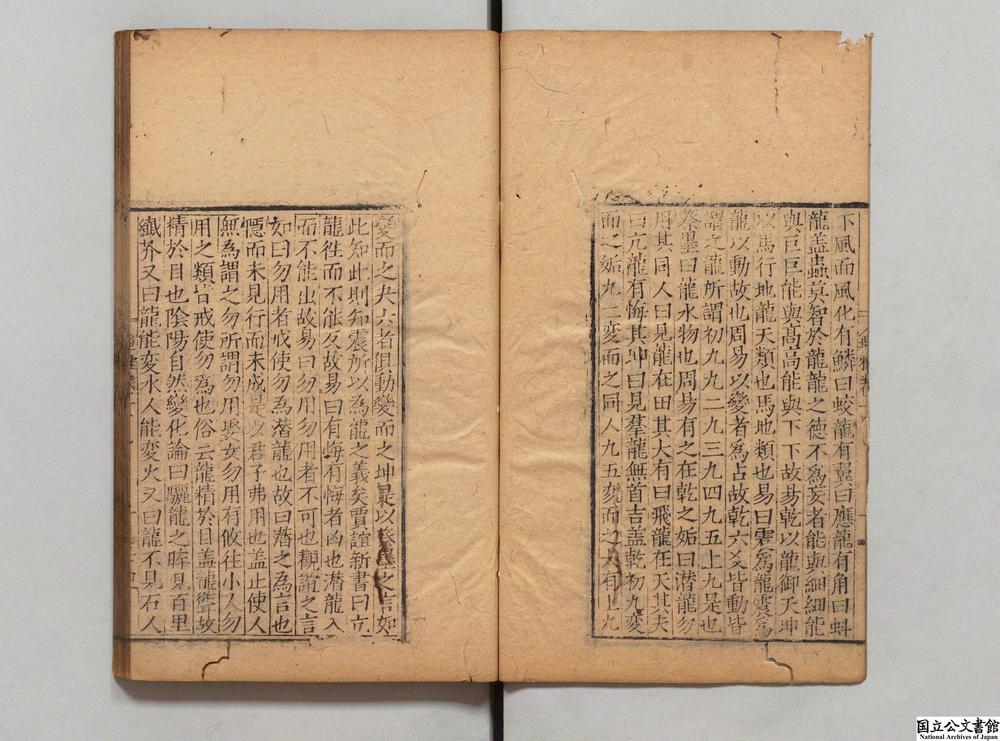 下風而風化有鱗曰蛟龍有翼曰應龍有角曰虯
龍盖蟲莫智於龍龍之德不為妄者能與細細能
與巨巨能與高高能與下下故昜乾以龍御天坤
以馬行地龍天類也馬地類也易曰震爲龍震爲
龍以動故也周易以變者爲占故乾六爻皆動皆
謂之龍所謂初九九二九三九四九五上九是也
蔡墨曰龍水物也周昜有之在乾之姤曰潜龍勿
用其同人曰見龍在田其大有曰飛龍在天其夬
曰亢龍有悔其坤曰見羣龍無首吉盖乾初九変
而之姤九二変而之同人九五変而之大有上九
變而之夬六者俱動變而之坤是以蔡墨之言如
此知此則知震所以為龍之義矣賈誼新書曰亢
龍徃而不能反故易曰有悔有悔者凶也潜龍入
而不能出故易曰勿用勿用者不可也觀誼之言
如曰勿用者戒使勿為潜龍也故曰潜之為言也
隱而未見行而未成是以君子弗用也盖止使人
無為謂之勿所謂勿用娶女勿用有攸往小人勿
用之類皆戒使勿為也俗云龍精於目盖龍聾故
精於目也陰陽自然變化論曰驪龍之眸見百里
纖芥又曰龍能変水人能変火又曰龍不見石人
国立公文書館
National Archives of Japan